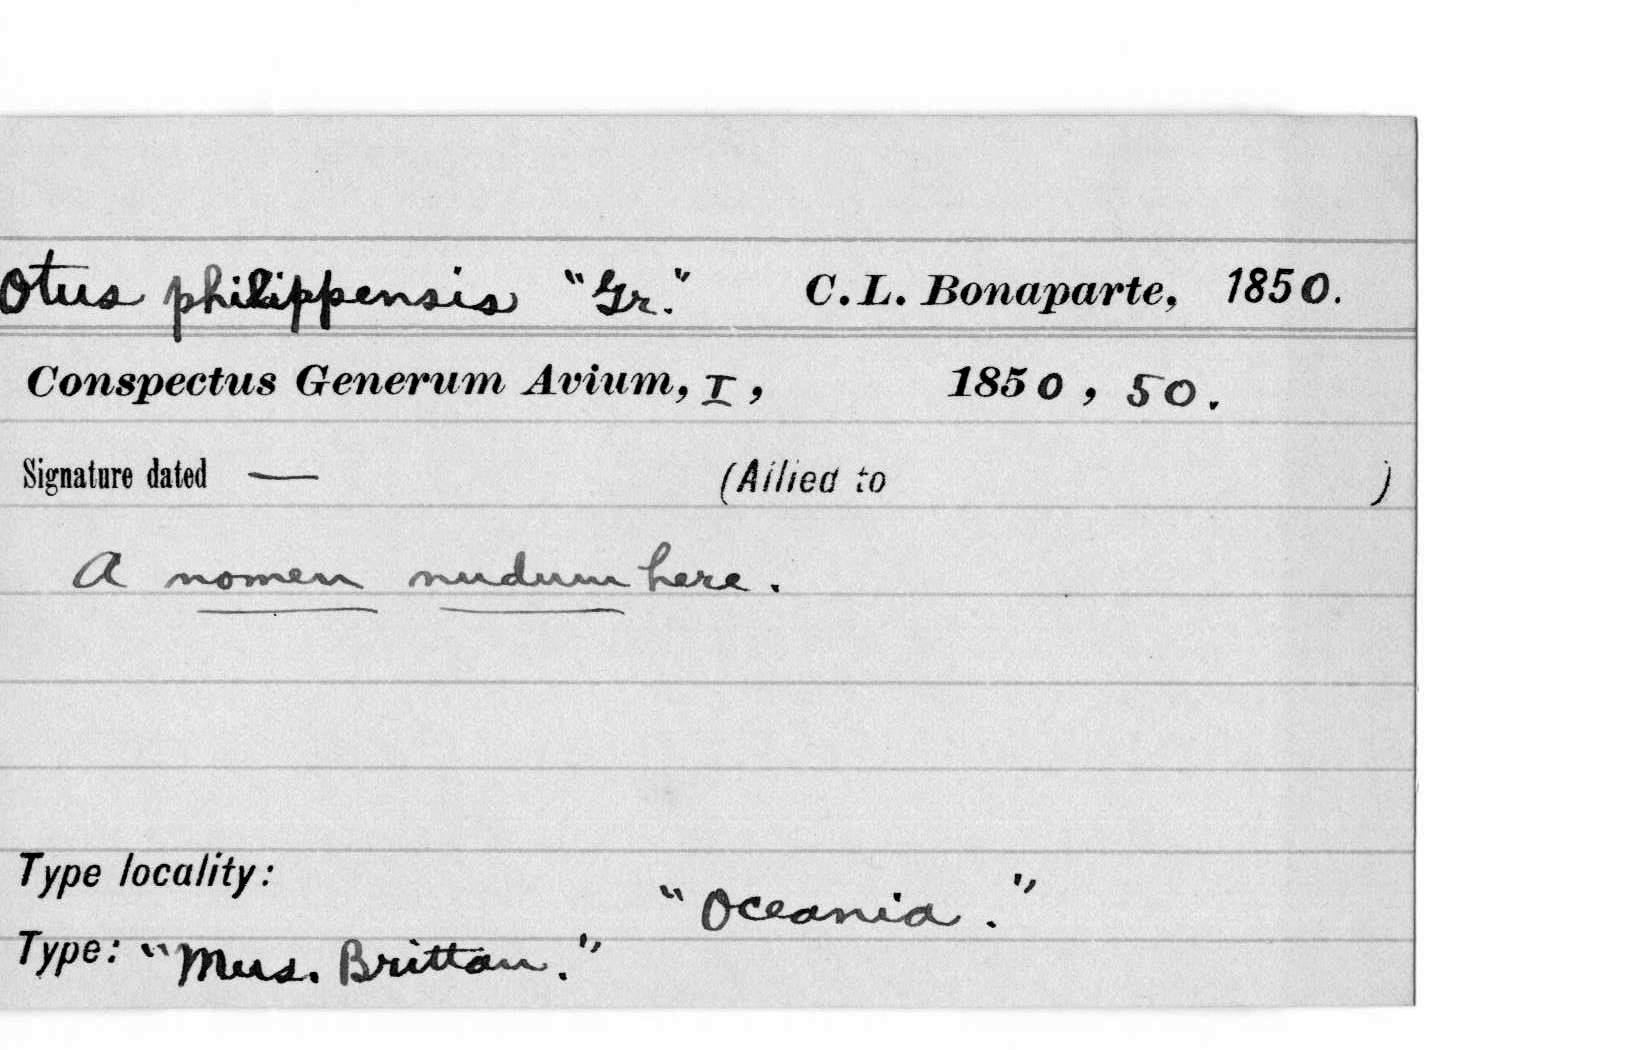 Otus philippensis "Gr." C. L. Bonaparte, 1850.
Conspectus Generum Avium, I, 1850, 50.
Signature dated — (Allied to )
A nomen nudum here.
Type locality:
"Oceania."
Type: "Mus. Brittan."